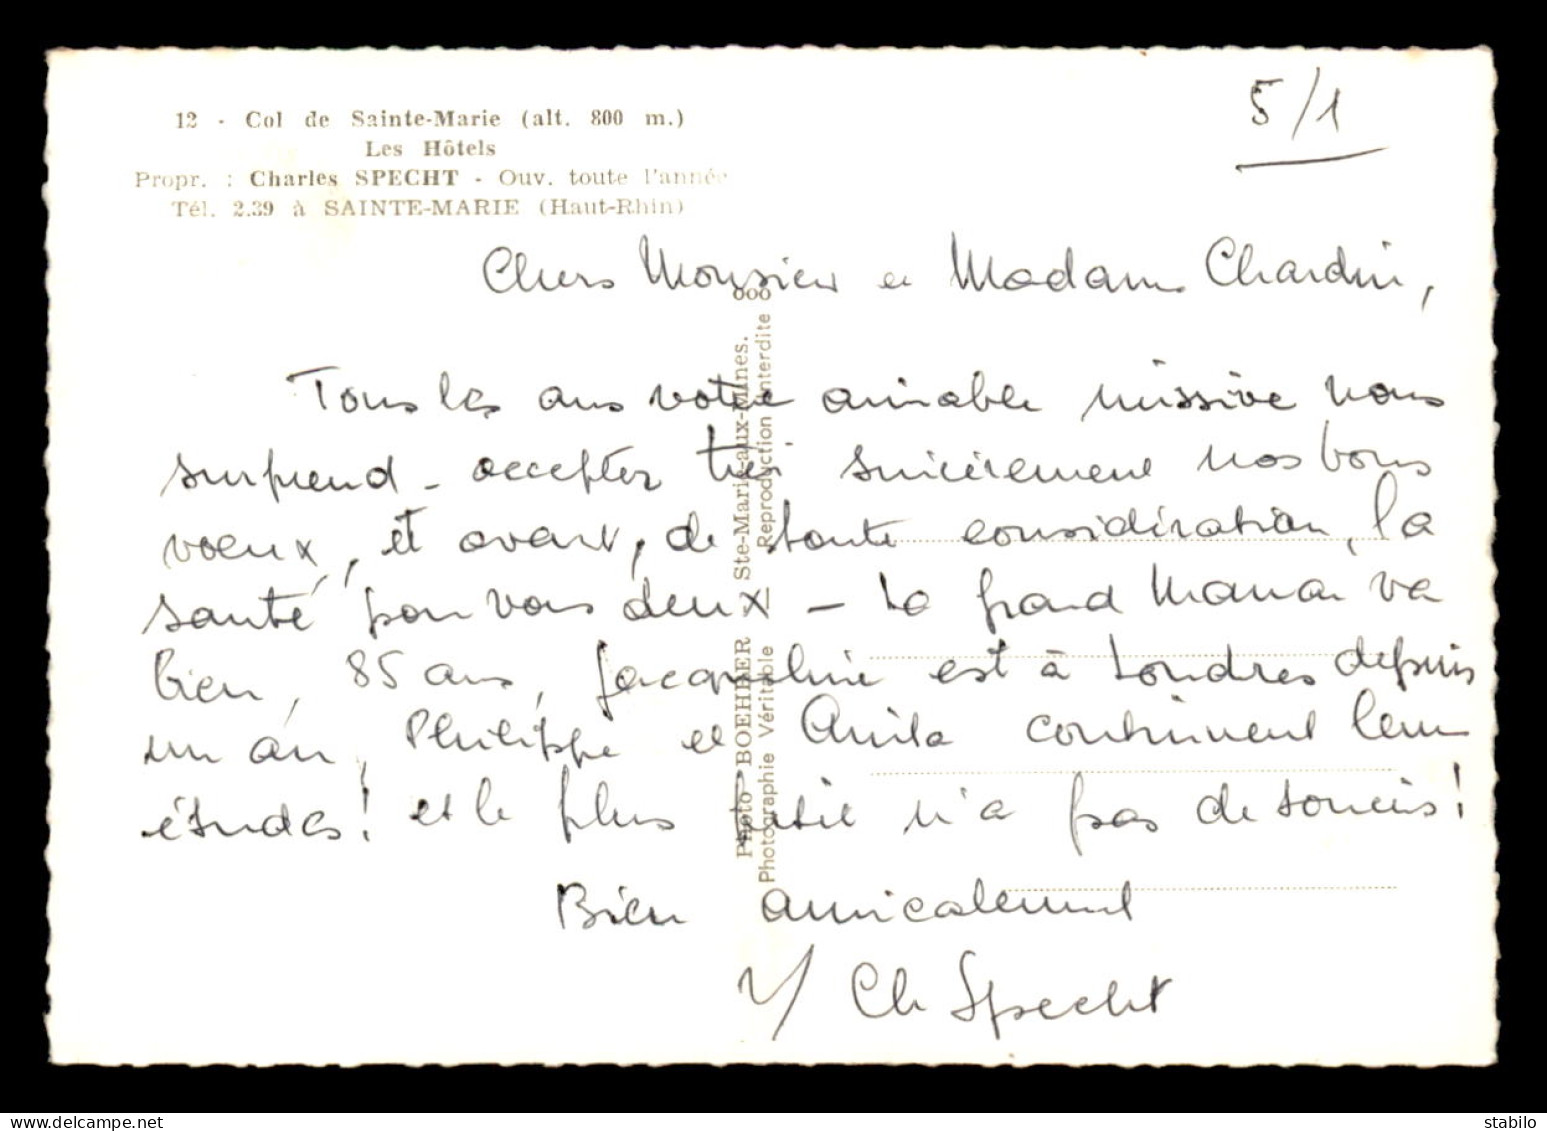 5/1
12 - Col de Sainte-Marie (alt. 800 m.)
Les Hôtels
Propr. : Charles SPECHT - Ouv. toute l'année
Tél. 2.39 à SAINTE-MARIE (Haut-Rhin)
Chers Monsieur et Madame Chardin,
Tous les ans votre aimable missive nous
surprend - acceptez très sincèrement nos bons
voeux, et avant, de toute considération, la
santé pour vous deux - La grand Maman va
bien, 85 ans, Jacqueline est à Londres depuis
un an, Philippe et Anita continuent leurs
études! et le plus petit n'a pas de soucis!
Bien amicalement
Ch Specht
Photo BOEHRER Ste-Marie-aux-Mines.
Photographie Véritable Reproduction Interdite ooo
stabilo